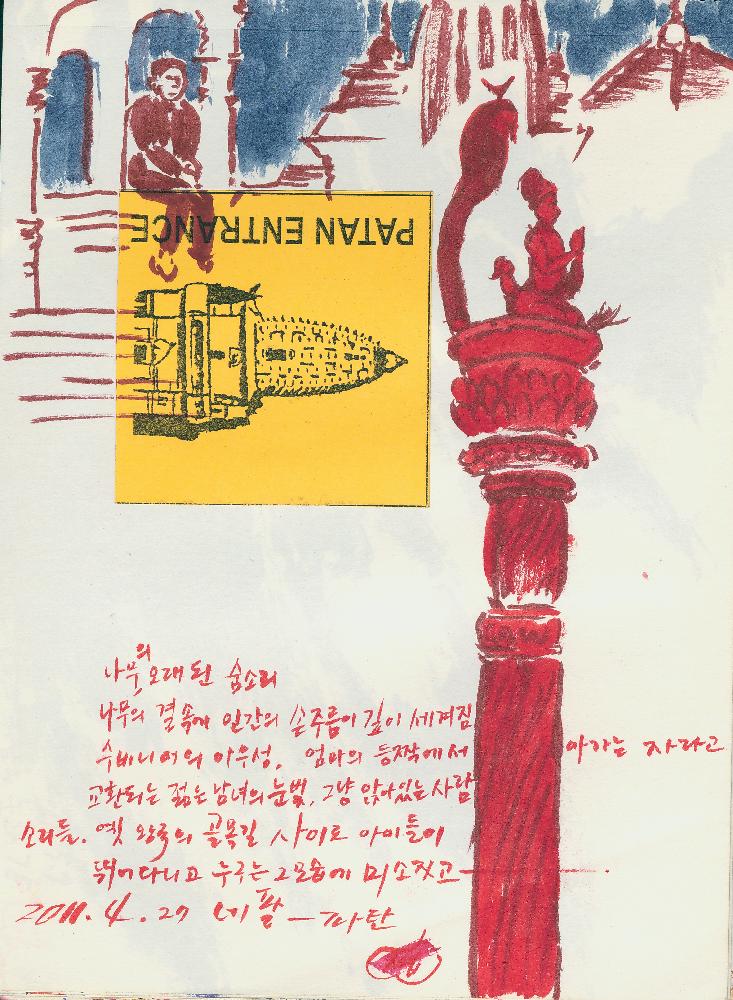 PATAN ENTRANCE
나무의 오래된 숨소리
나무의 결속에 인간의 손주름이 깊이 새겨짐
수수세의 아우성, 엄마의 등짝에서 아가는 자라고
교환되는 젊은 남녀의 눈빛, 그냥 앉아있는 사람
소리들. 옛 왕국의 골목길 사이로 아이들이
뛰어다니고 누구는 그 모습에 미소짓고
2011. 4. 27 네팔 — 파탄